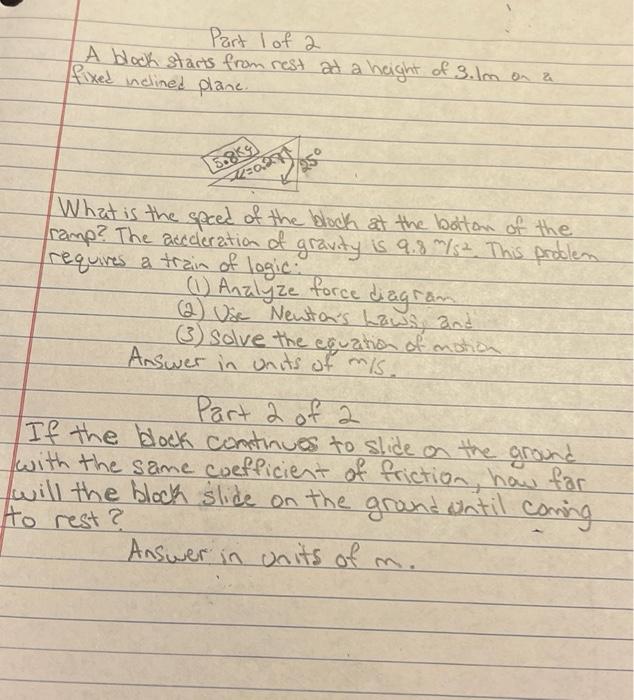 Part 1 of 2
A block starts from rest at a height of 3.1m on a
fixed inclined plane.
5.8Kg
25°
What is the speed of the block at the bottom of the
ramp? The acceleration of gravity is 9.8 m/s². This problem
requires a train of logic:
(1) Analyze force diagram
(2) Use Newton's Laws, and
(3) Solve the equation of motion
Answer in units of m/s.
Part 2 of 2
If the block continues to slide on the ground
with the same coefficient of friction, how far
will the block slide on the ground until coming
to rest?
Answer in units of m.